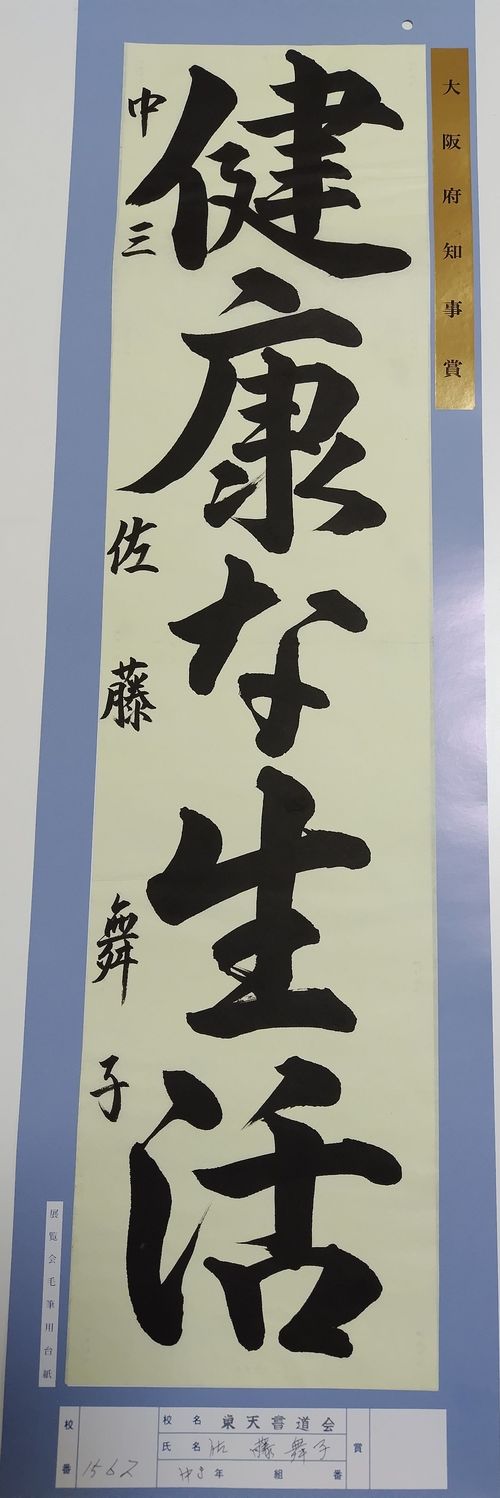 大阪府知事賞
健康な生活
中三 佐藤舞子
展覧会毛筆用台紙
校番 1562
校名 東天書道会
氏名 佐藤舞子
中3年 組 番
賞